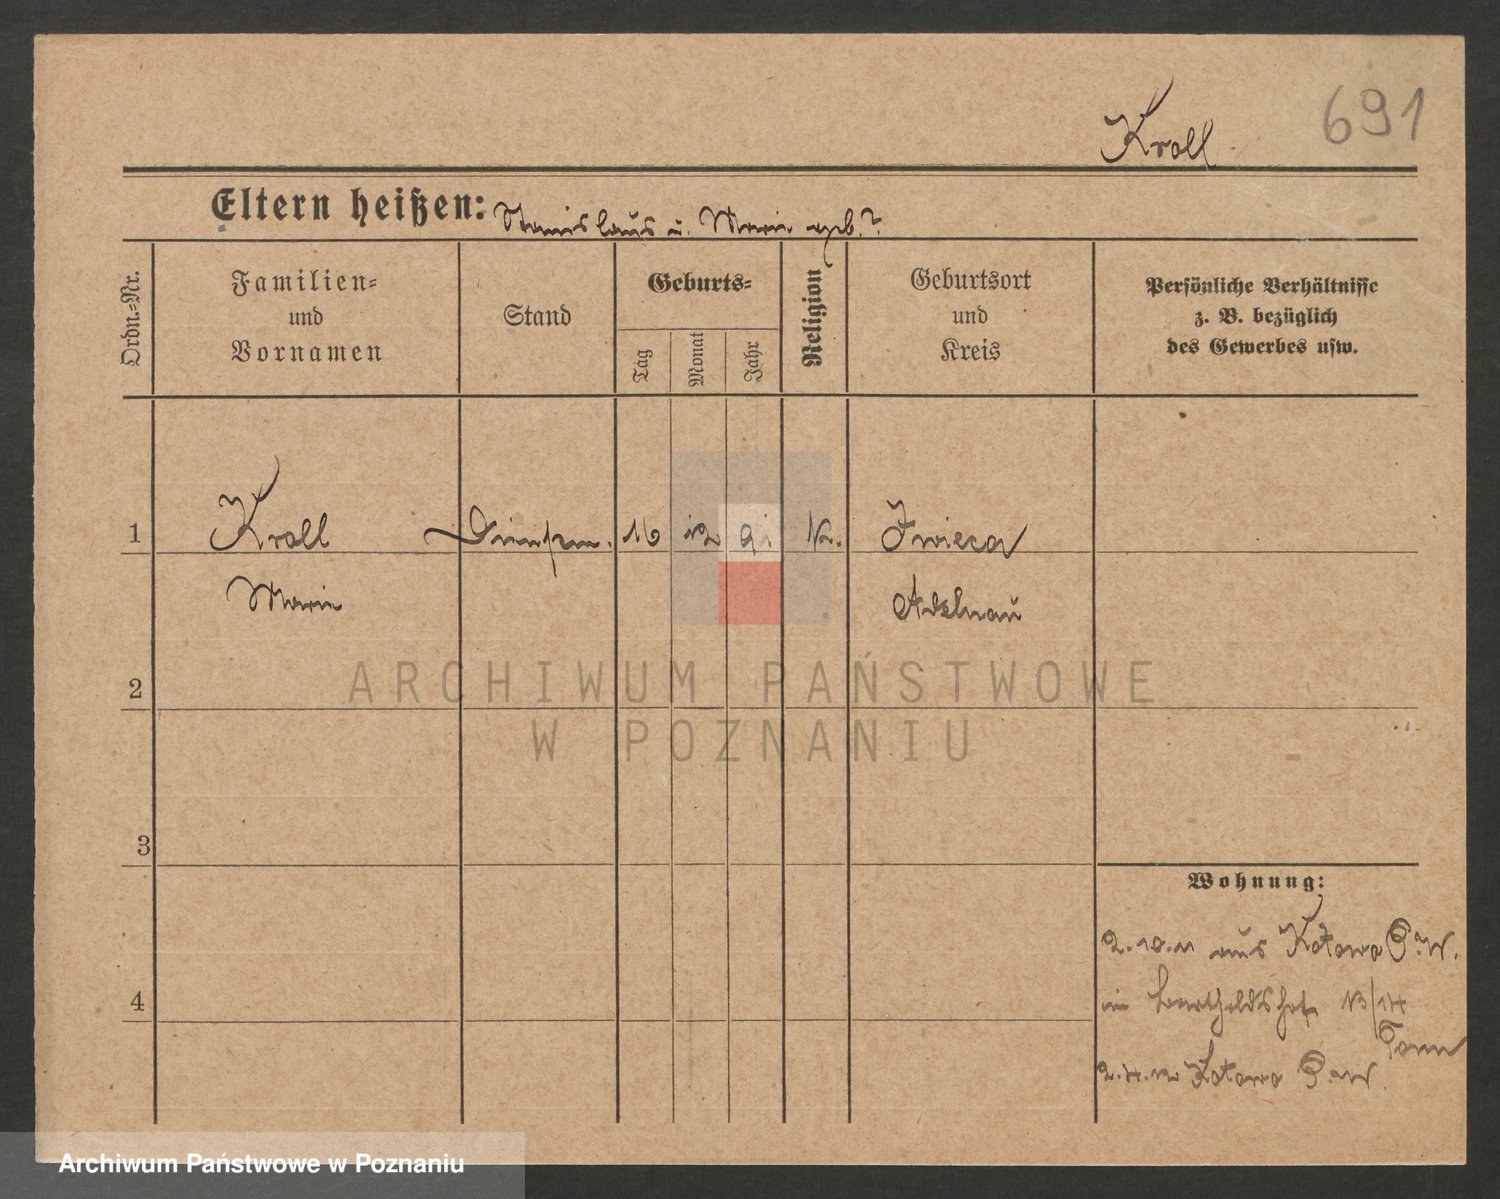 691
Kroll
Eltern heißen: Stanislaus u. Marie geb. ?
Ordn.-Nr.
Familien- und Vornamen
Stand
Geburts-
Tag
Monat
Jahr
Religion
Geburtsort und Kreis
Persönliche Verhältnisse z. B. bezüglich des Gewerbes usw.
1 Kroll 16 12 91 K.
Marie Adelnau
2
ARCHIWUM PAŃSTWOWE
W POZNANIU
3
Wohnung:
2.10.11 aus Kotowo P.W.
in Bartholdshof 13/14
4
2.4.12 Kotowo P.W.
Archiwum Państwowe w Poznaniu